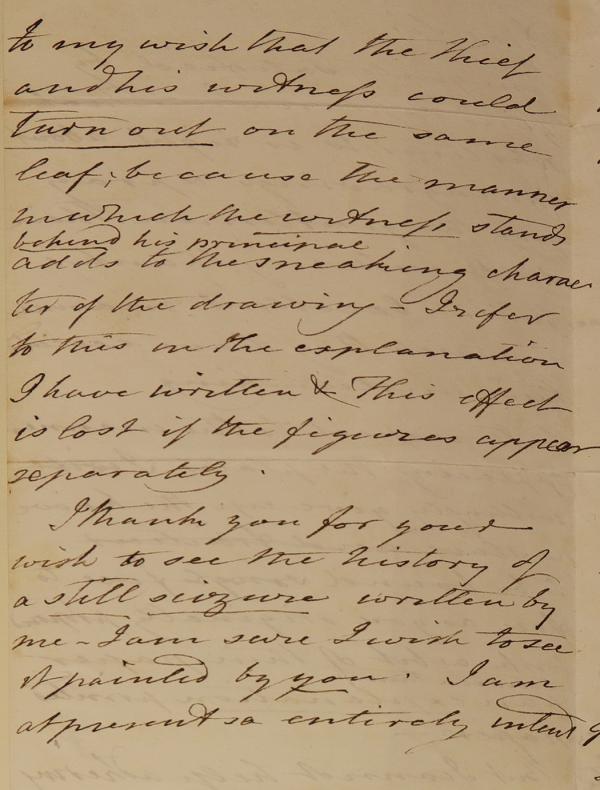 to my wish that the thief
and his witness could
turn out on the same
leaf; because the manner
in which the witness stands
behind his principal
adds to the sneaking charac
ter of the drawing - I refer
to this in the explanation
I have written & This effect
is lost if the figures appear
separately.
I thank you for your
wish to see the history of
a still seizure written by
me - I am sure I wish to see
it painted by you. I am
at present so entirely intent